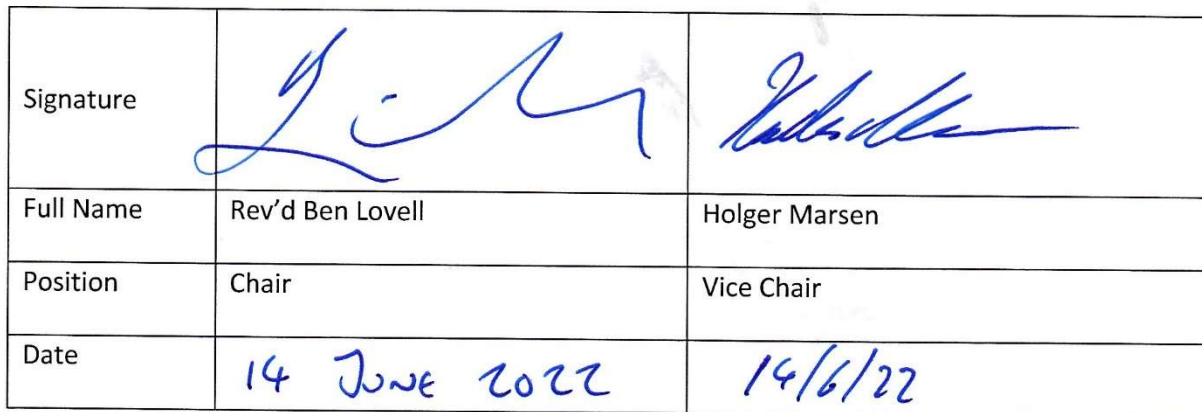 Signature
Full Name Rev'd Ben Lovell Holger Marsen
Position Chair Vice Chair
Date 14 JUNE 2022 14/6/22